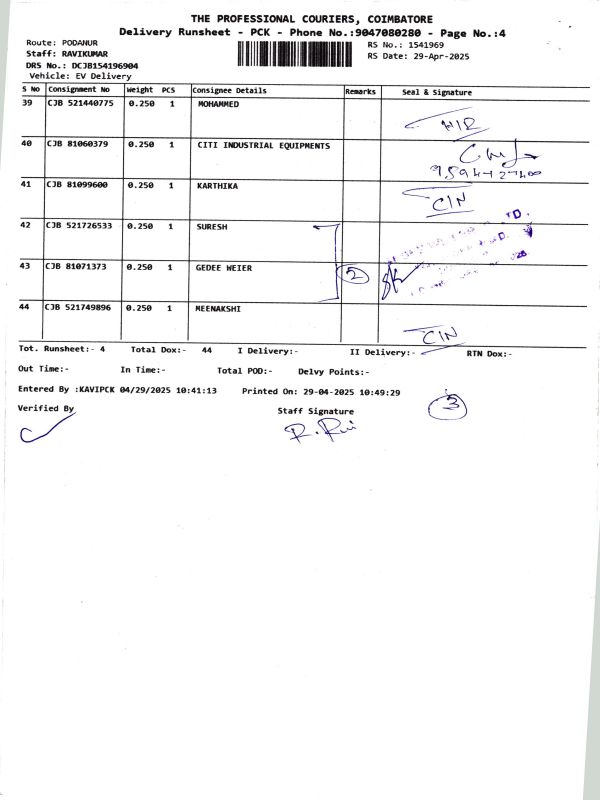 THE PROFESSIONAL COURIERS, COIMBATORE
Delivery Runsheet - PCK - Phone No.:9047080280 - Page No.:4
Route: PODANUR
RS No.: 1541969
Staff: RAVIKUMAR
RS Date: 29-Apr-2025
DRS No.: DCJB154196904
Vehicle: EV Delivery
S No Consignment No Weight PCS Consignee Details Remarks Seal & Signature
39 CJB 521440775 0.250 1 MOHAMMED
40 CJB 81060379 0.250 1 CITI INDUSTRIAL EQUIPMENTS
41 CJB 81099600 0.250 1 KARTHIKA CIN
42 CJB 521726533 0.250 1 SURESH
43 CJB 81071373 0.250 1 GEDEE WEIER 2
44 CJB 521749896 0.250 1 MEENAKSHI CIN
Tot. Runsheet:- 4 Total Dox:- 44 I Delivery:- II Delivery:- RTN Dox:-
Out Time:- In Time:- Total POD:- Delvy Points:-
Entered By :KAVIPCK 04/29/2025 10:41:13 Printed On: 29-04-2025 10:49:29
3
Verified By Staff Signature